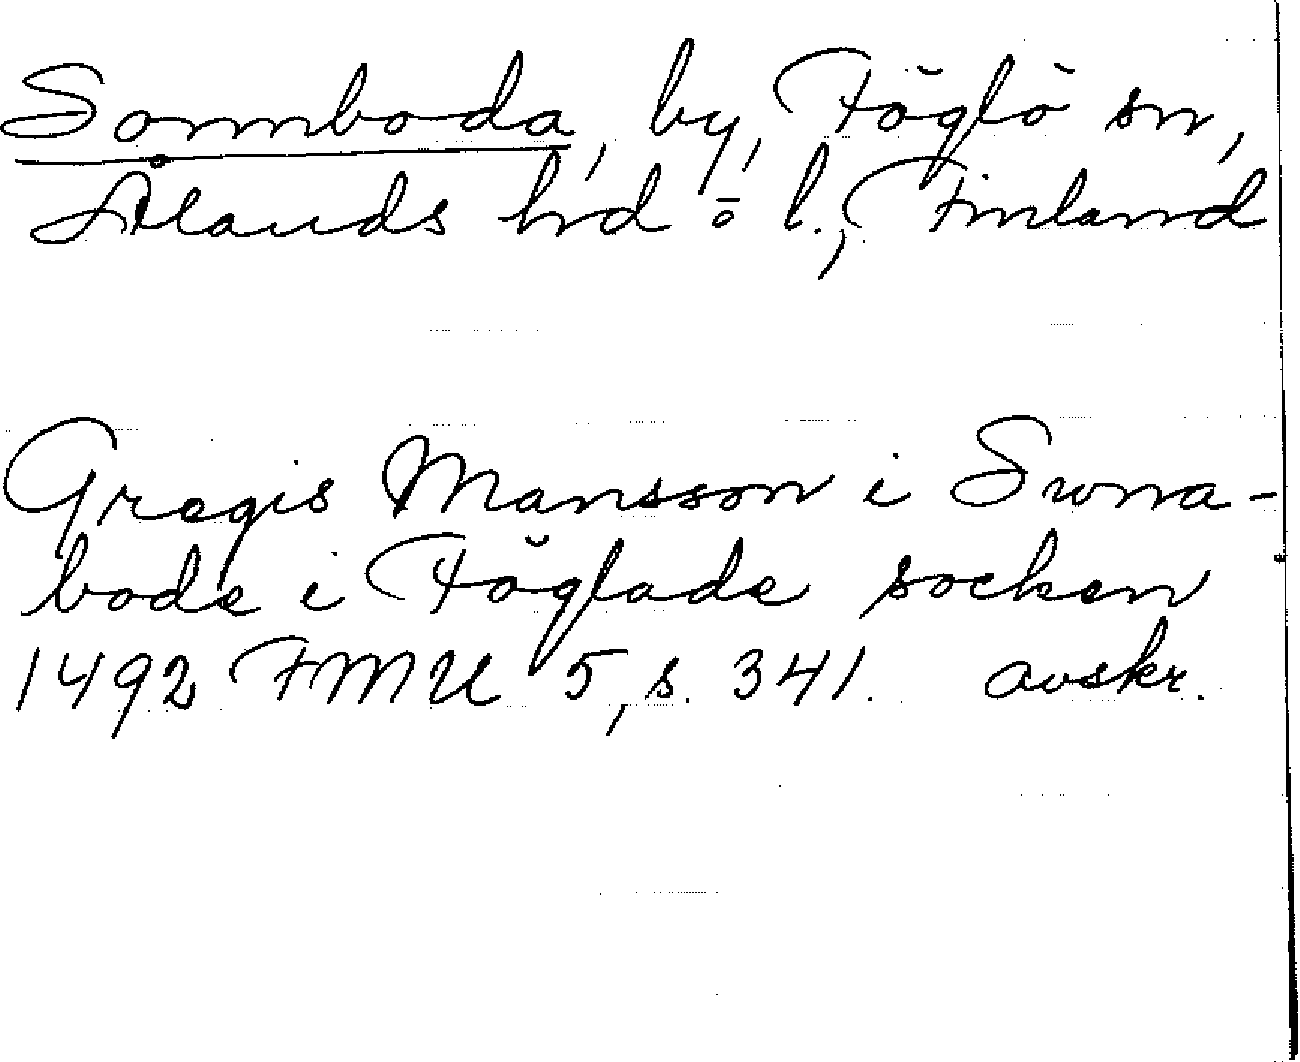 Sonnboda, by, Föglö sn,
Ålands hd o l., Finland
Gregis Mansson i Swna-
bode i Föglade socken
1492 FMU 5, s. 341. avskr.